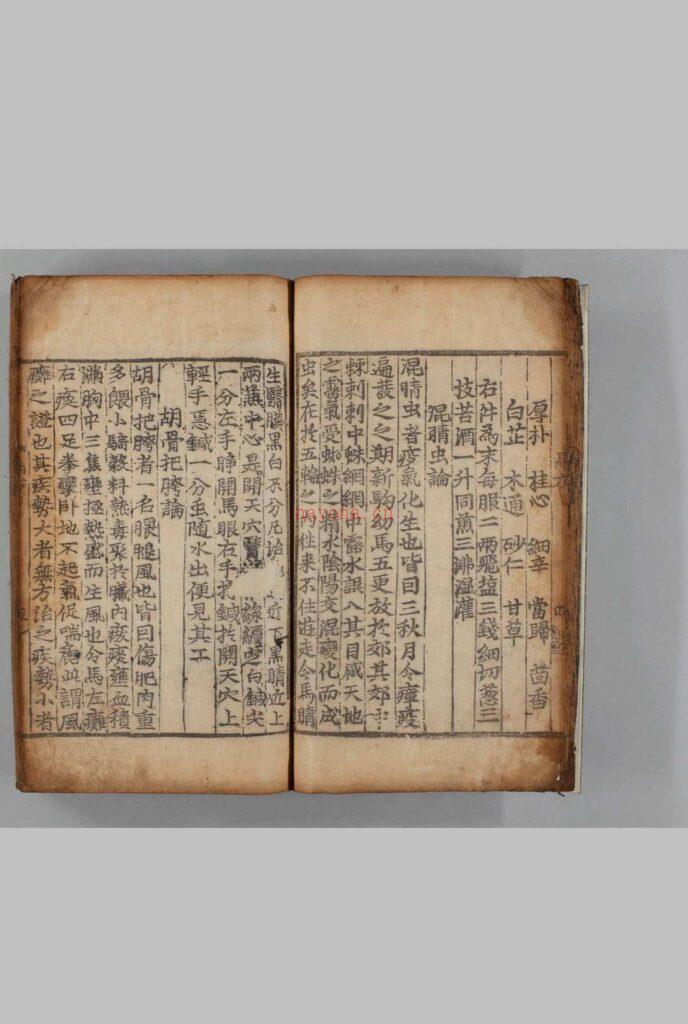 厚朴 桂心 細辛 當歸 茴香
白芷 木通 砂仁 甘草
右件為末每服二兩飛塩三錢細切葱三
技苦酒一升同煎三沸温灌
混睛虫論
混睛虫者疫氣化生也皆曰三秋月令瘟疫
遍 之之期新駒幼馬五更放於郊其郊
棘刺刺中蛛網網中露水誤入其目感天地
之霧氣受蜘蛛之精水陰陽交混變化而成
虫矣在於五輪之內往來不住遊走令馬睛
生翳膜黑白不分凡治 近下黑睛近上
兩 中心是開天穴 線纏定白鍼尖
一分左手睜開馬眼右手 鍼於開天穴上
輕手急鍼一分虫隨水出便見其工
胡骨把胯論
胡骨把胯者一名腲腿風也皆曰傷肥肉重
多餵少騎穀料熱毒聚於臟內痰 壅血積
滿胸中三焦壅極熱盛而生風也令馬左癱
右瘓四足拳攣卧地不起氣促喘麄此謂風
之證也其疾勢大者無方治之疾勢小者
nayona.cn